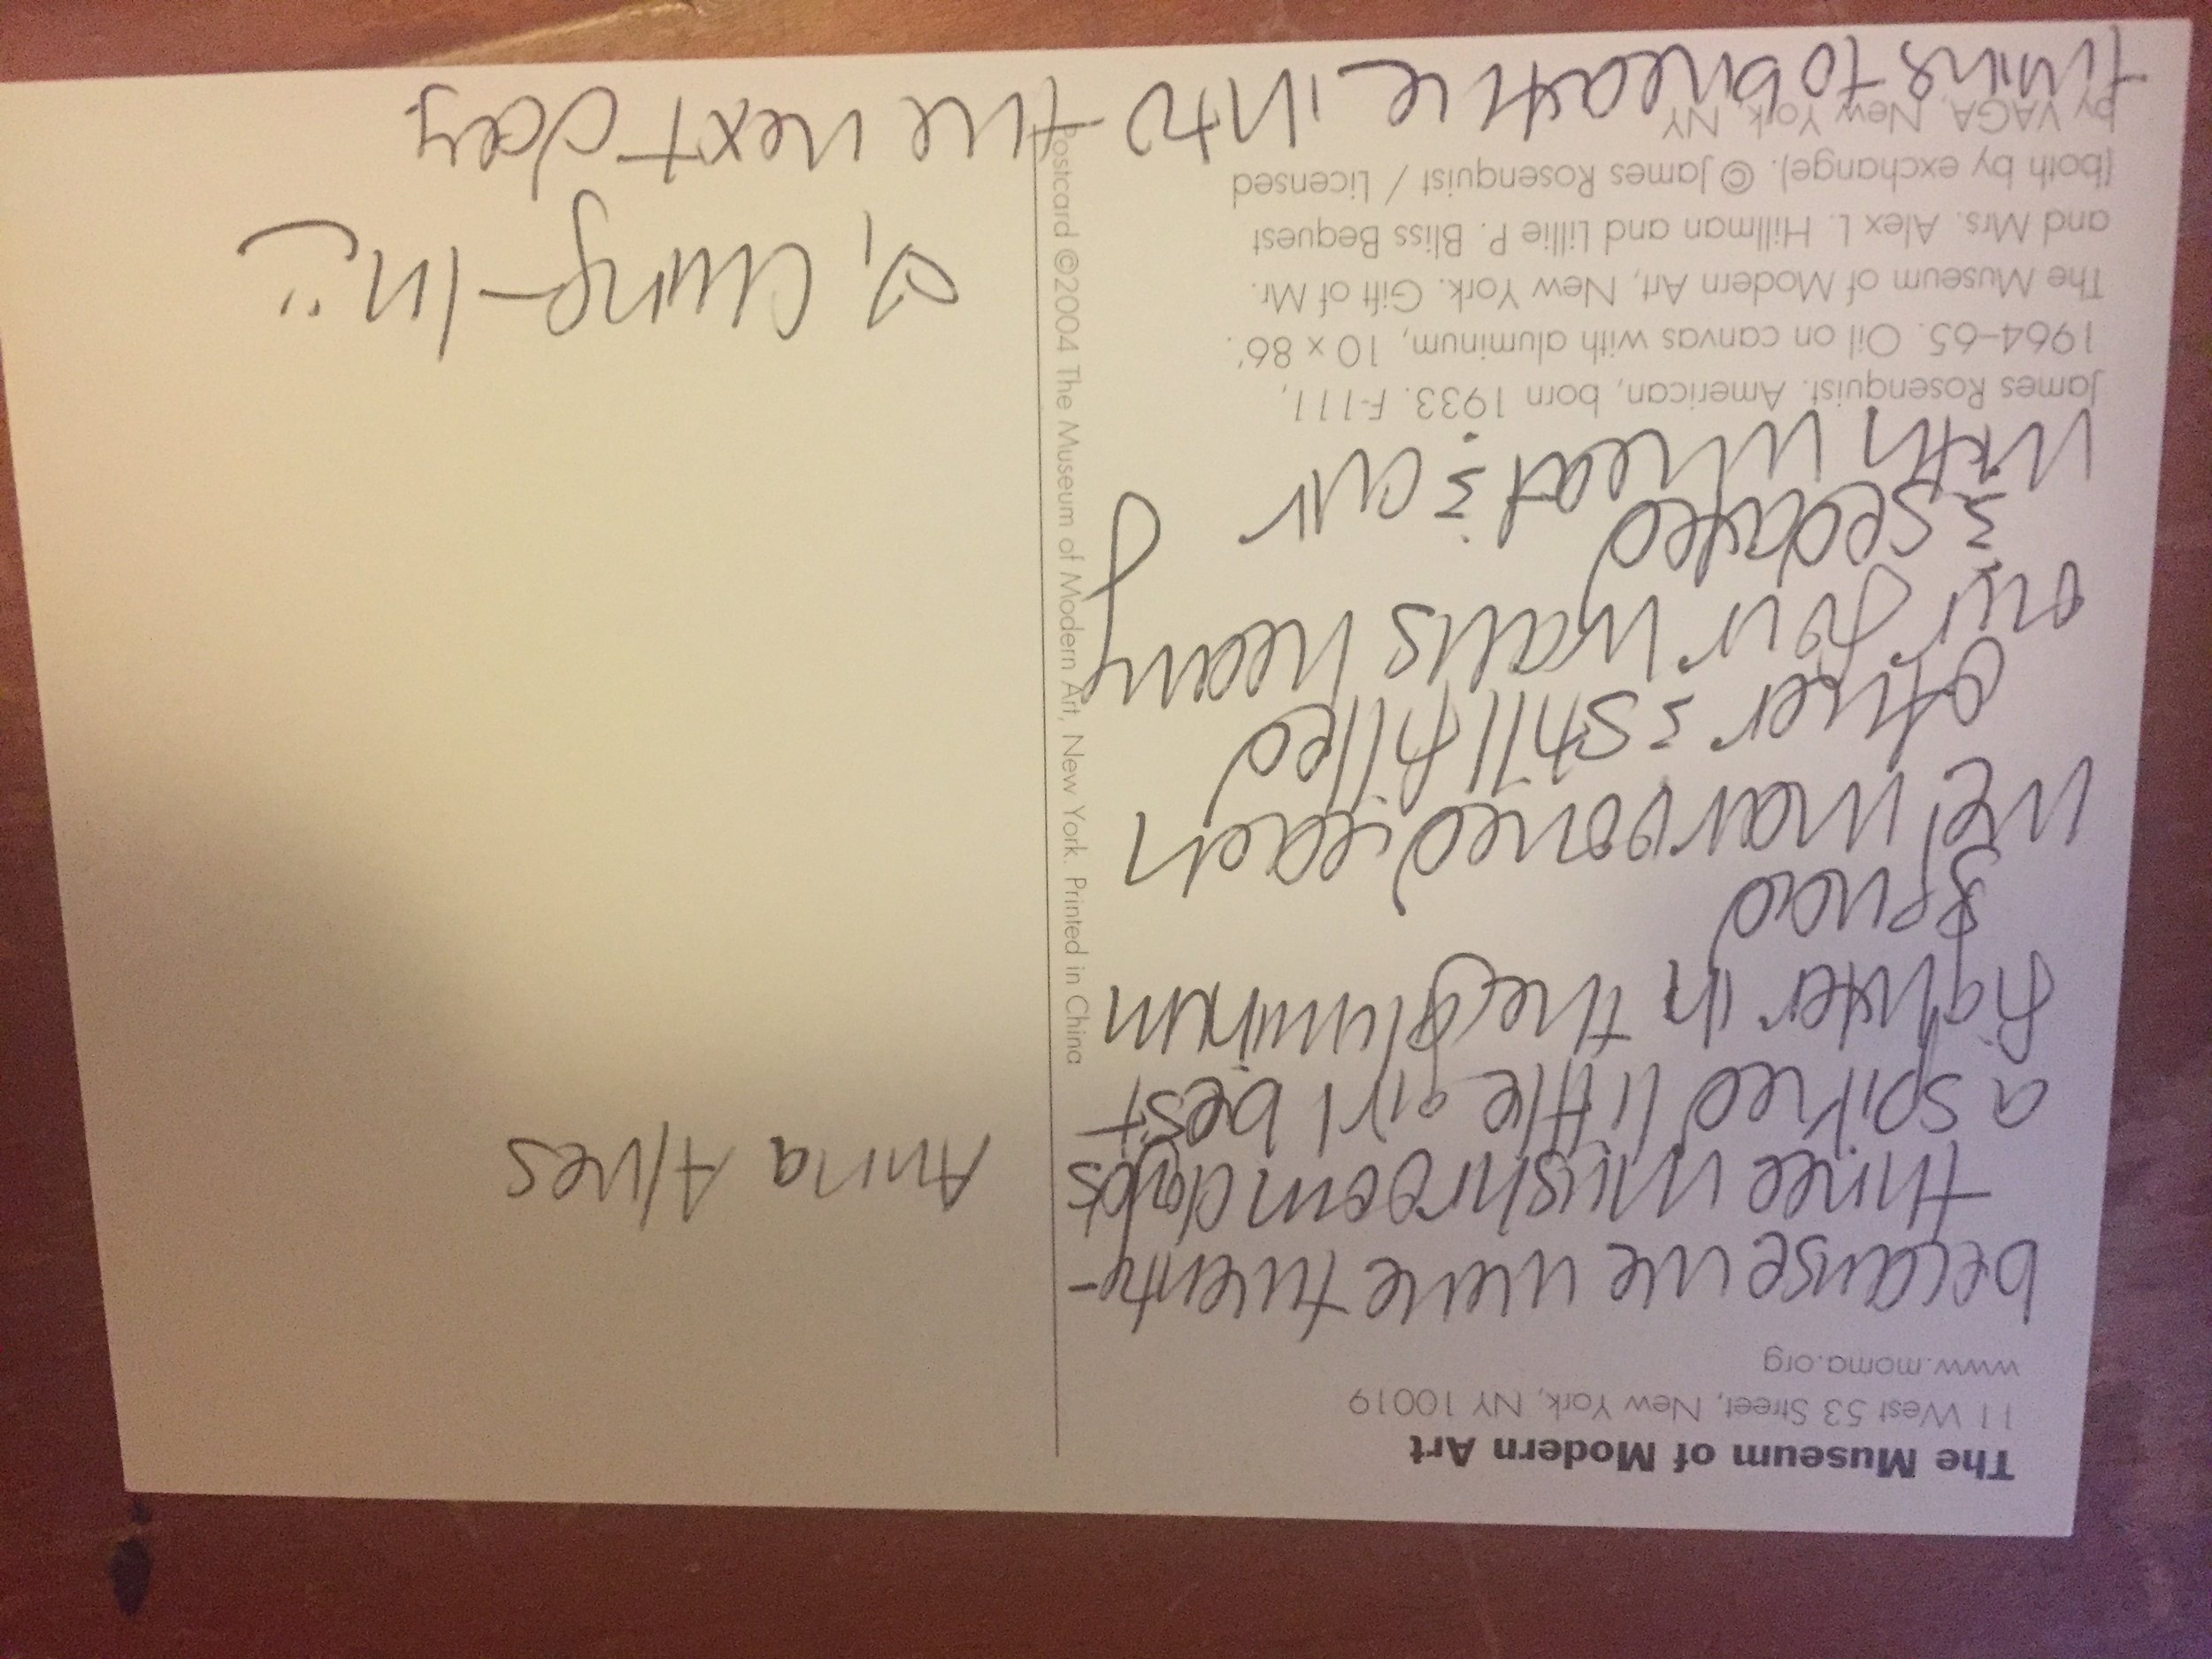 The Museum of Modern Art
11 West 53 Street, New York, NY 10019
www.moma.org
because we were twenty-
three mushroom clouds
a spiked little girl best
fighter in the aluminum
squad
we marooned each
other & still filled
our four walls heavy
& sedated
with wheat & air
James Rosenquist. American, born 1933. F-111,
1964–65. Oil on canvas with aluminum, 10 x 86'.
The Museum of Modern Art, New York. Gift of Mr.
and Mrs. Alex L. Hillman and Lillie P. Bliss Bequest
(both by exchange). © James Rosenquist / Licensed
by VAGA, New York, NY
trying to breathe into the next day
Postcard ©2004 The Museum of Modern Art, New York. Printed in China
Anna Alves
♡, Ching-In